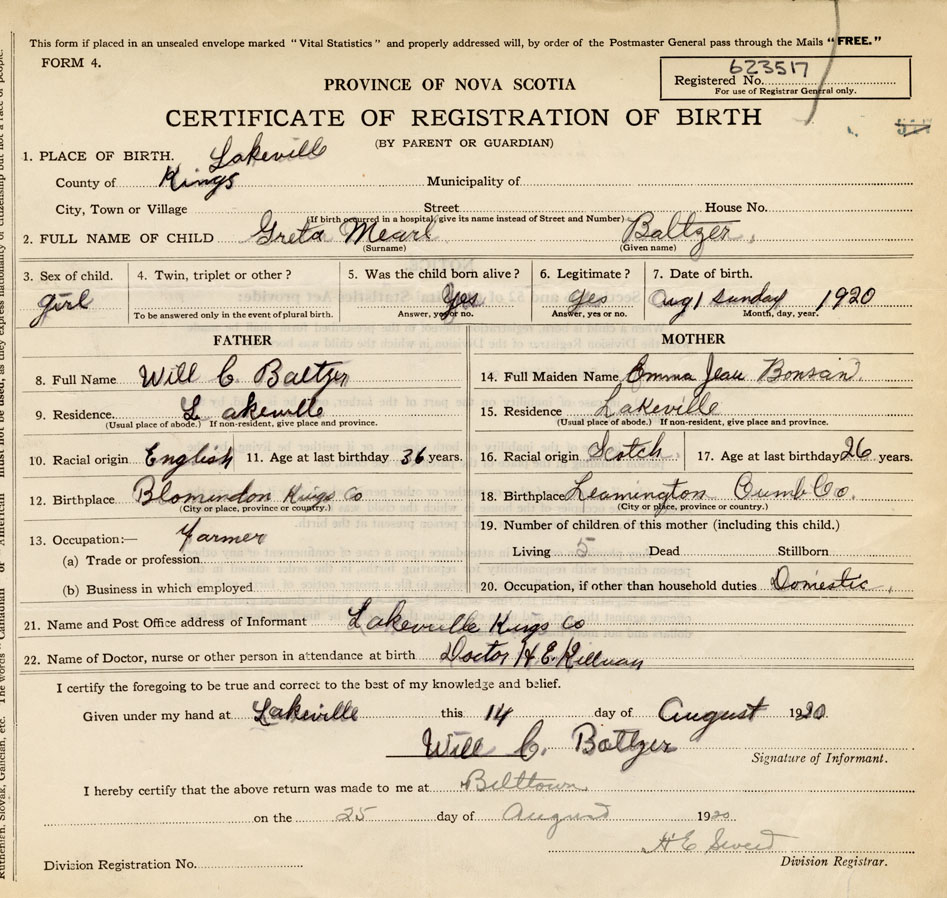 This form if placed in an unsealed envelope marked "Vital Statistics" and properly addressed will, by order of the Postmaster General pass through the Mails "FREE."
FORM 4.
623517
Registered No.
For use of Registrar General only.
PROVINCE OF NOVA SCOTIA
CERTIFICATE OF REGISTRATION OF BIRTH
(BY PARENT OR GUARDIAN)
1. PLACE OF BIRTH. Lakeville
County of Kings Municipality of
City, Town or Village Street House No.
(If birth occurred in a hospital, give its name instead of Street and Number)
2. FULL NAME OF CHILD Greta Mearl Baltzer
(Surname) (Given name)
3. Sex of child. 4. Twin, triplet or other? 5. Was the child born alive? 6. Legitimate? 7. Date of birth.
girl Yes yes Aug 1 Sunday 1920
To be answered only in the event of plural birth. Answer, yes or no. Answer, yes or no. Month, day, year.
FATHER MOTHER
8. Full Name Will C Baltzer 14. Full Maiden Name Emma Jean
9. Residence. Lakeville 15. Residence Lakeville
(Usual place of abode.) If non-resident, give place and province. (Usual place of abode.) If non-resident, give place and province.
10. Racial origin English 11. Age at last birthday 36 years. 16. Racial origin Scotch 17. Age at last birthday 26 years.
12. Birthplace Blomindon Kings Co 18. Birthplace Leamington Cumb Co.
(City or place, province or country.) (City or place, province or country.)
13. Occupation:— Farmer 19. Number of children of this mother (including this child.)
(a) Trade or profession Living 5 Dead Stillborn
(b) Business in which employed 20. Occupation, if other than household duties Domestic
21. Name and Post Office address of Informant Lakeville Kings Co
22. Name of Doctor, nurse or other person in attendance at birth Doctor H.E.
I certify the foregoing to be true and correct to the best of my knowledge and belief.
Given under my hand at Lakeville this 14 day of August 1920
Will C. Baltzer
Signature of Informant.
I hereby certify that the above return was made to me at Billtown
on the 25 day of August 1920
H E
Division Registration No. Division Registrar.